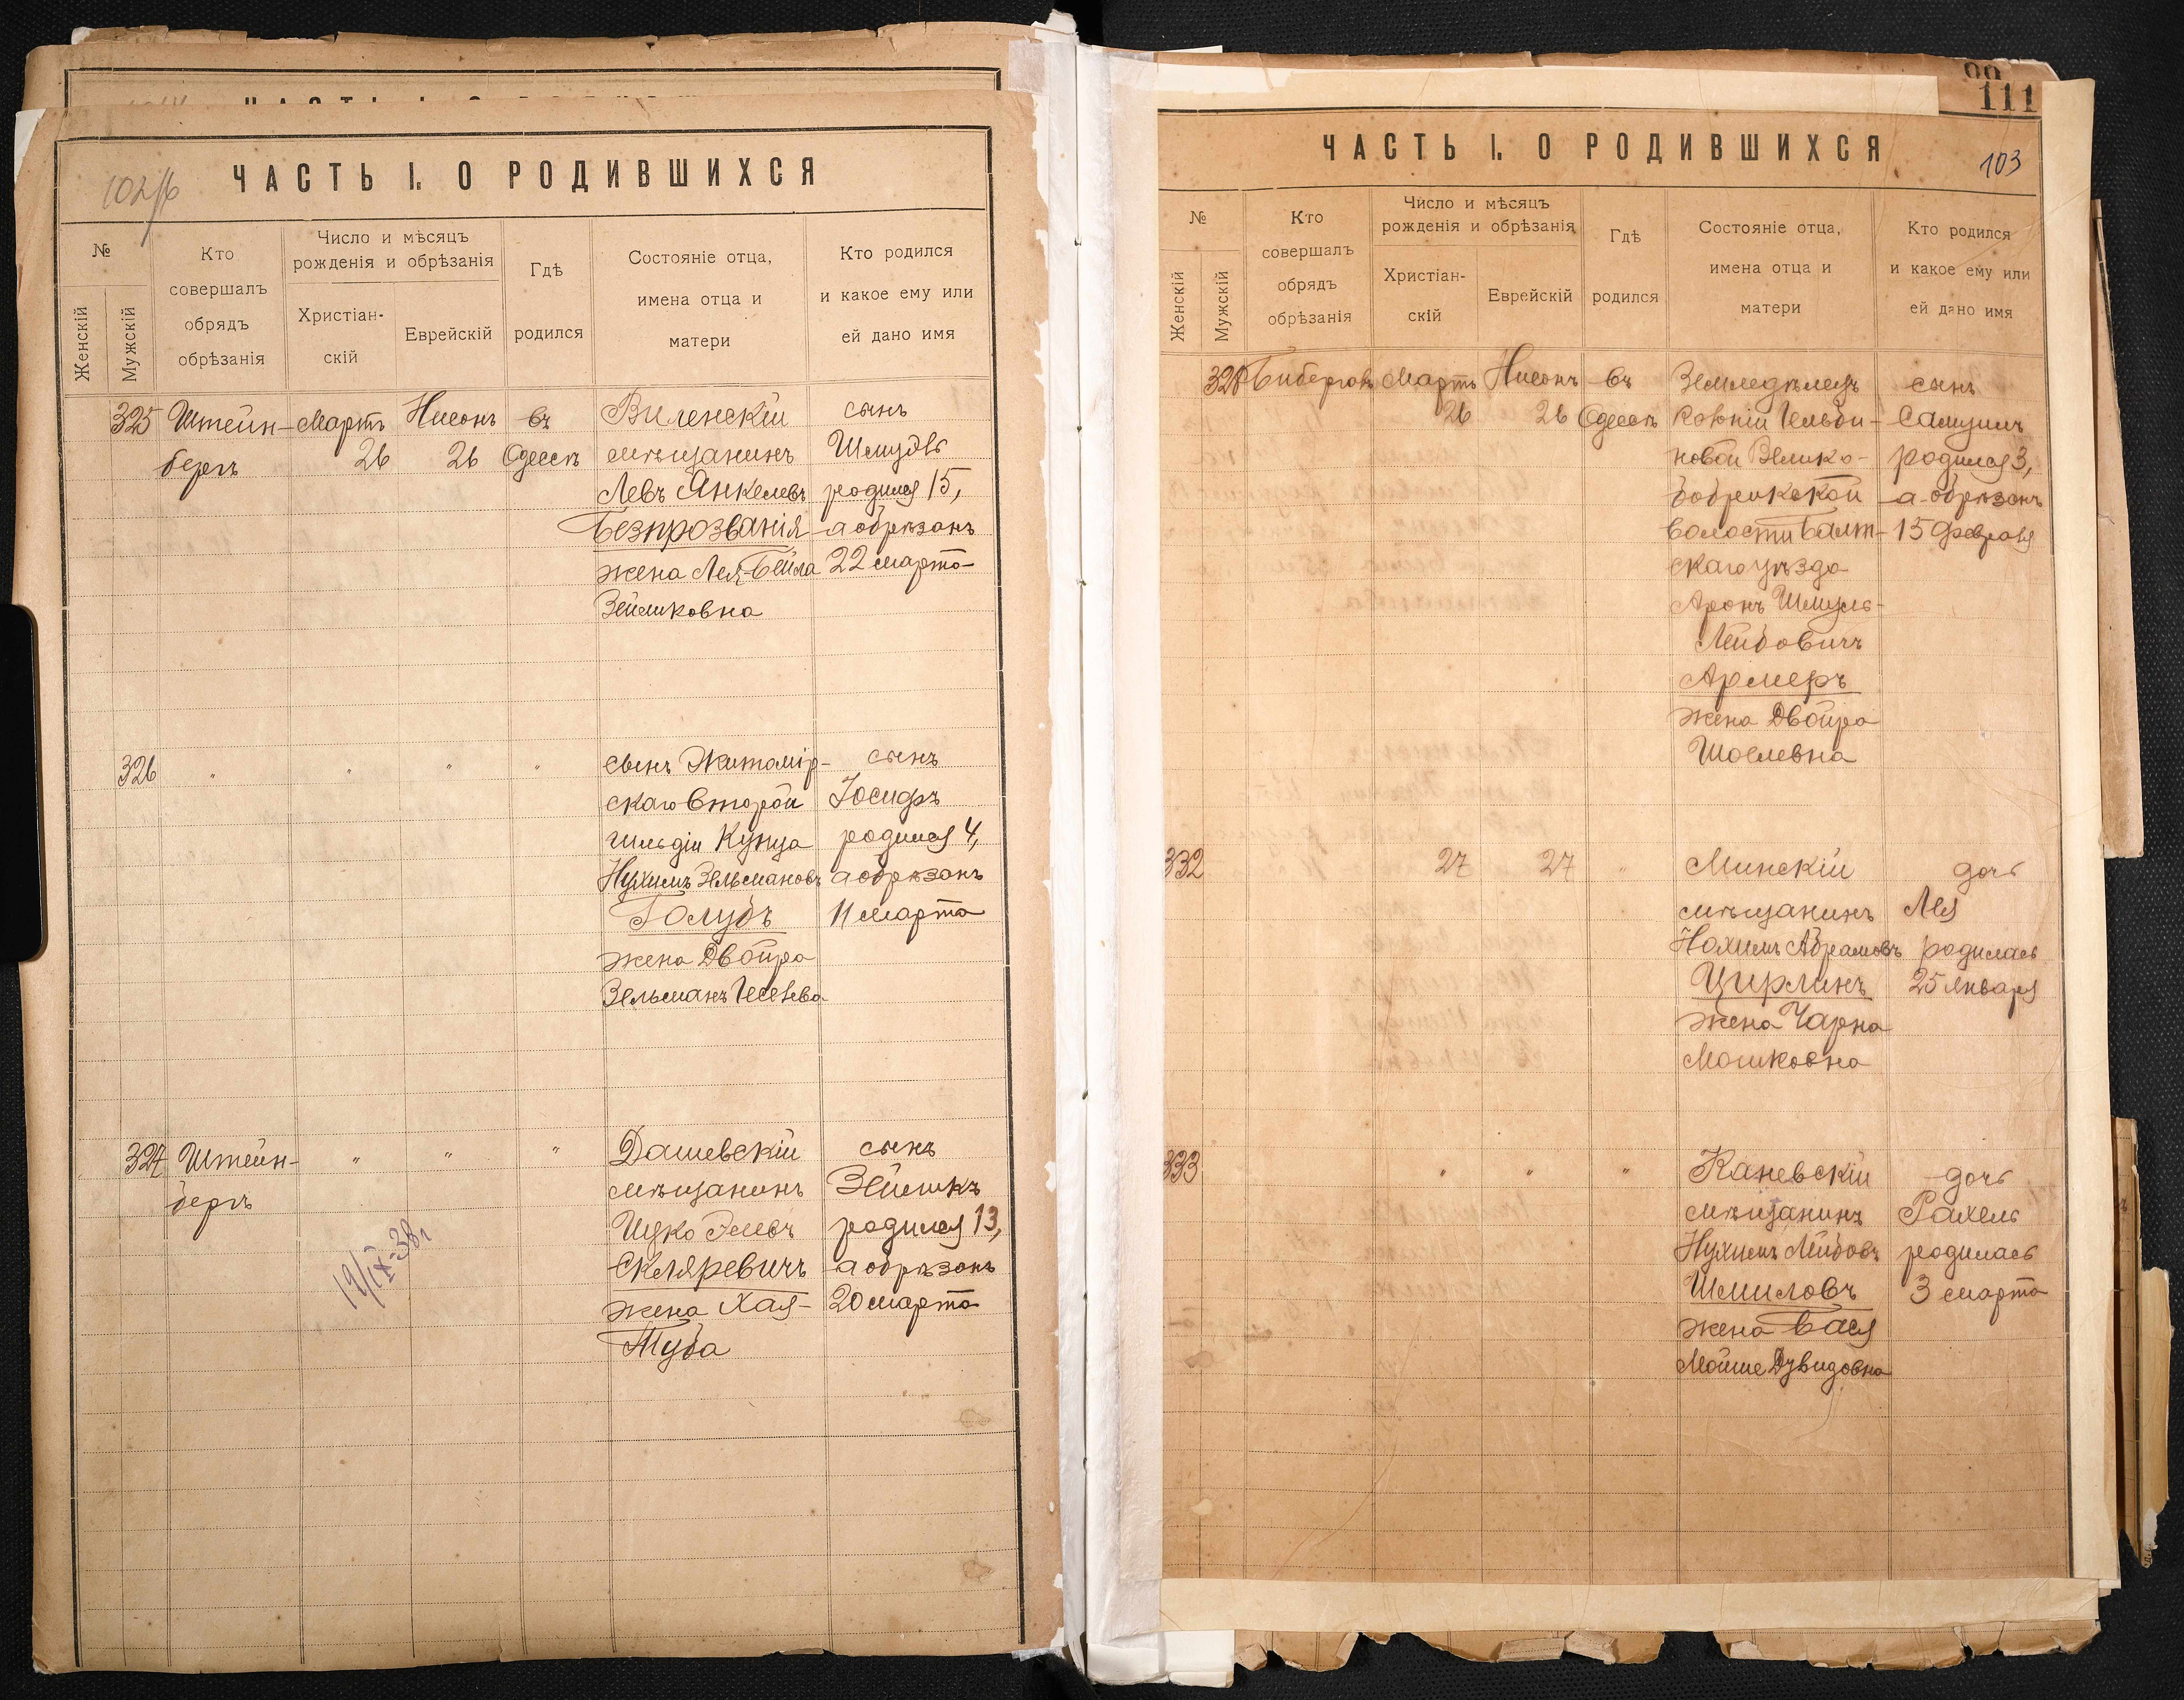 ЧАСТЬ I. О РОДИВШИХСЯ
102/б
№
Женскій
Мужскій
Кто
совершалъ
обрядъ
обрѣзанія
Число и мѣсяцъ
рожденія и обрѣзанія
Христіан-
скій
Еврейскій
Гдѣ
родился
Состояніе отца,
имена отца и
матери
Кто родился
и какое ему или
ей дано имя
325 Штейн- Мартъ Нисонъ въ Виленскій сынъ
бергъ 26 26 Одессѣ мѣщанинъ Шмудь
Левъ Янкелевъ родился 15,
Безпрозванія а обрѣзанъ
жена Лея-Бейла 22 марта
Зеймковна
326 " " " " сынъ Житомір- сынъ
скаго второй Іосифъ
гильдіи Купца родился 4,
Нухимъ Зельмановъ а обрѣзанъ
Голубъ 11 марта
жена Двойра
Зельманъ
327 Штейн- " " " Дашевскій сынъ
бергъ мѣщанинъ Зеймкъ
родился 13,
Скляревичъ а обрѣзанъ
жена Хая- 20 марта
Туба
19/IX-38г
111
ЧАСТЬ I. О РОДИВШИХСЯ
103
№
Женскій
Мужскій
Кто
совершалъ
обрядъ
обрѣзанія
Число и мѣсяцъ
рожденія и обрѣзанія
Христіан-
скій
Еврейскій
Гдѣ
родился
Состояніе отца,
имена отца и
матери
Кто родился
и какое ему или
ей дано имя
328 Бибергалъ Мартъ Нисонъ въ Земледѣлецъ сынъ
26 26 Одессѣ Колоніи Гельби- Самуилъ
новой Велико- родился 3,
Бобрикской а обрѣзанъ
волости Балт- 15 февраля
скаго уѣзда
Аронъ Шмуль-
Лейбовичъ
Армеръ
жена Двойра
Шоелевна
332 27 27 " Минскій дочь
мѣщанинъ Лея
Нохимъ Абрамовъ родилась
Цирлинъ 25 января
жена Чарна
Мошковна
333 " " " Каневскій дочь
мѣщанинъ Рахель
Нухимъ Лейбовъ родилась
Шмиловъ 3 марта
жена Бася
Мойше Дувидовна